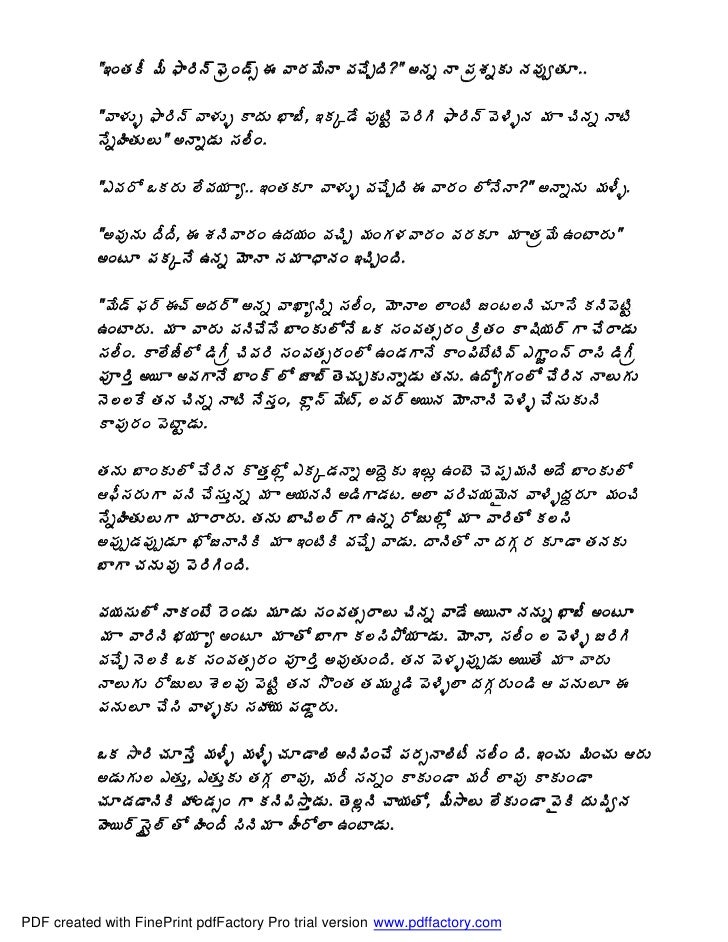 "ఇంతకీ మీ ఫారిన్ ఫ్రెండ్స్ ఈ వారమేనా వచ్చేది?" అన్న నా ప్రశ్నకు నవ్వుతూ..
"వాళ్ళు ఫారిన్ వాళ్ళు కాదు భాబీ, ఇక్కడే పుట్టి పెరిగి ఫారిన్ వెళ్ళిన మా చిన్న నాటి
స్నేహితులు" అన్నాడు సలీం.
"ఎవరో ఒకరు లేవయ్యా.. ఇంతకూ వాళ్ళు వచ్చేది ఈ వారం లోనేనా?" అన్నాను మళ్ళీ.
"అవును దీదీ, ఈ శనివారం ఉదయం వచ్చి మంగళవారం వరకూ మాత్రమే ఉంటారు"
అంటూ పక్కనే ఉన్న మోనా సమాధానం ఇచ్చింది.
"మేడ్ ఫర్ ఈచ్ అదర్" అన్న వాఖ్యాన్ని సలీం, మోనాల లాంటి జంటలని చూసే కనిపెట్టి
ఉంటారు. మా వారు పనిచేసే బాంకులోనే ఒక సంవత్సరం క్రితం కాషియర్ గా చేరాడు
సలీం. కాలేజీలో డిగ్రీ చివరి సంవత్సరంలో ఉండగానే కాంపిటేటివ్ ఎగ్జాంస్ రాసి డిగ్రీ
పూర్తి అయీ అవగానే బాంక్ లో జాబ్ తెచ్చుకున్నాడు తను. ఉద్యోగంలో చేరిన నాలుగు
నెలలకే తన చిన్న నాటి నేస్తం, క్లాస్ మేట్, లవర్ అయిన మోనాని పెళ్ళి చేసుకుని
కాపురం పెట్టాడు.
తను బాంకులో చేరిన కొత్తల్లో ఎక్కడన్నా అద్దెకు ఇల్లు ఉంటె చెప్పమని అదే బాంకులో
ఆఫీసరుగా పని చేస్తున్న మా ఆయనని అడిగాడట. అలా పరిచయమైన వాళ్ళిద్దరూ మంచి
స్నేహితులుగా మారారు. తను బాచిలర్ గా ఉన్న రోజుల్లో మా వారితో కలసి
అప్పుడప్పుడూ భోజనానికి మా ఇంటికి వచ్చే వాడు. దానితో నా దగ్గర కూడా తనకు
బాగా చనువు పెరిగింది.
వయసులో నాకంటే రెండు మూడు సంవత్సరాలు చిన్న వాడే అయినా నన్ను భాబీ అంటూ
మా వారిని భయ్యా అంటూ మాతో బాగా కలసిపోయాడు. మోనా, సలీం ల పెళ్ళి జరిగి
వచ్చే నెలకి ఒక సంవత్సరం పూర్తి అవుతుంది. తన పెళ్ళప్పుడు అయితే మా వారు
నాలుగు రోజులు శెలవు పెట్టి తన సొంత తమ్ముడి పెళ్ళిలా దగ్గరుండి ఆ పనులూ ఈ
పనులూ చేసి వాళ్ళకు సహాయ పడ్డారు.
ఒక సారి చూస్తే మళ్ళీ మళ్ళీ చూడాలి అనిపించే పర్సనాలిటీ సలీం ది. ఇంచు మించు ఆరు
అడుగుల ఎత్తు, ఎత్తుకు తగ్గ లావు, మరీ సన్నం కాకుండా మరీ లావు కాకుండా
చూడడానికి హాండ్సం గా కనిపిస్తాడు. తెల్లని చాయతో, మీసాలు లేకుండా పైకి దువ్విన
హెయిర్ స్టైల్ తో హిందీ సినిమా హీరోలా ఉంటాడు.
PDF created with FinePrint pdfFactory Pro trial version www.pdffactory.com